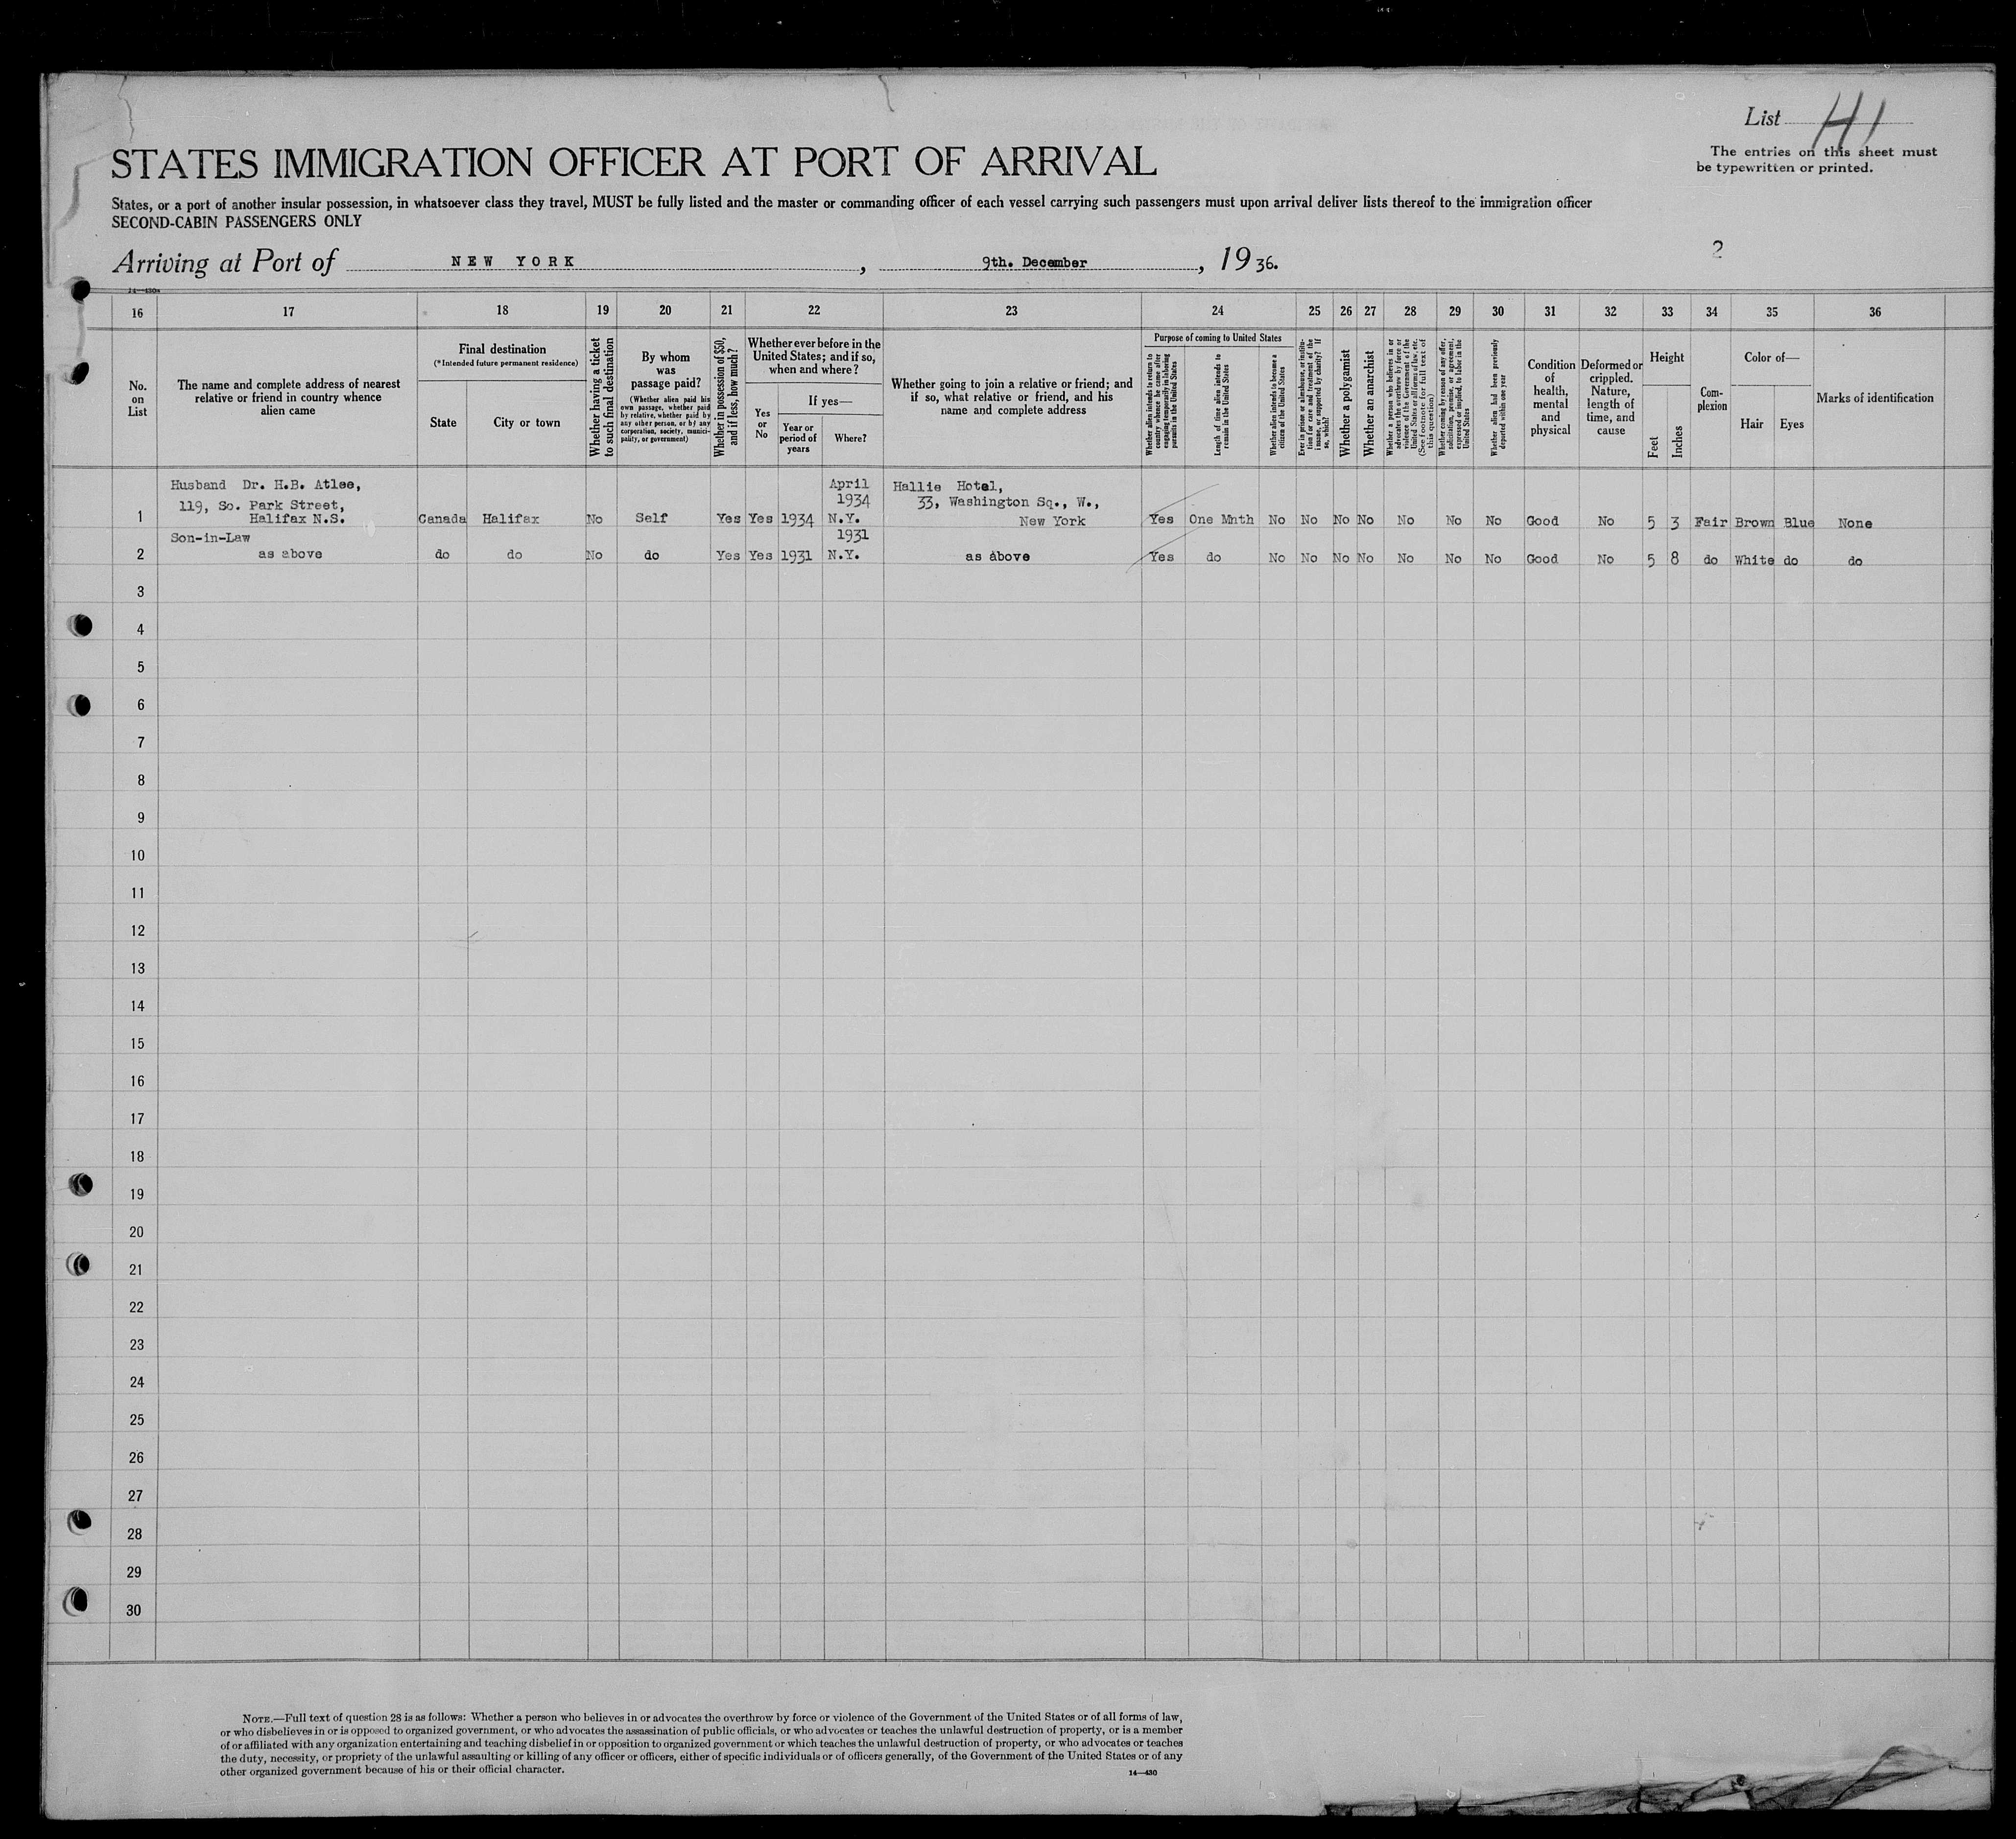 List 41
The entries on this sheet must
be typewritten or printed.
STATES IMMIGRATION OFFICER AT PORT OF ARRIVAL
States, or a port of another insular possession, in whatsoever class they travel, MUST be fully listed and the master or commanding officer of each vessel carrying such passengers must upon arrival deliver lists thereof to the immigration officer
SECOND-CABIN PASSENGERS ONLY
Arriving at Port of NEW YORK, 9th. December, 1936.
2
14—430
16 17 18 19 20 21 22 23 24 25 26 27 28 29 30 31 32 33 34 35 36
No. on List
The name and complete address of nearest relative or friend in country whence alien came
Final destination
(*Intended future permanent residence)
State
City or town
Whether having a ticket to such final destination
By whom was passage paid?
(Whether alien paid his own passage, whether paid by relative, whether paid by any other person, or by any corporation, society, municipality, or government)
Whether in possession of $50, and if less, how much?
Whether ever before in the United States; and if so, when and where?
Yes or No
If yes—
Year or period of years
Where?
Whether going to join a relative or friend; and if so, what relative or friend, and his name and complete address
Purpose of coming to United States
Whether alien intends to return to country whence he came after engaging temporarily in laboring pursuits in the United States
Length of time alien intends to remain in the United States
Whether alien intends to become a citizen of the United States
Ever in prison or almshouse, or institution for care and treatment of the insane, or supported by charity? If so, which?
Whether a polygamist
Whether an anarchist
Whether a person who believes in or advocates the overthrow by force or violence of the Government of the United States or all forms of law, etc. (See footnote for full text of this question)
Whether coming by reason of any offer, solicitation, promise, or agreement, expressed or implied, to labor in the United States
Whether alien had been previously deported within one year
Condition of health, mental and physical
Deformed or crippled. Nature, length of time, and cause
Height
Feet
Inches
Com-
plexion
Color of—
Hair
Eyes
Marks of identification
Husband Dr. H.B. Atlee, April Hallie Hotel,
119, So. Park Street, 1934 33, Washington Sq., W.,
1 Halifax N.S. Canada Halifax No Self Yes Yes 1934 N.Y. New York Yes One Mnth No No No No No No No Good No 5 3 Fair Brown Blue None
Son-in-Law 1931
2 as above do do No do Yes Yes 1931 N.Y. as above Yes do No No No No No No No Good No 5 8 do White do do
3
4
5
6
7
8
9
10
11
12
13
14
15
16
17
18
19
20
21
22
23
24
25
26
27
28
29
30
NOTE.—Full text of question 28 is as follows: Whether a person who believes in or advocates the overthrow by force or violence of the Government of the United States or of all forms of law,
or who disbelieves in or is opposed to organized government, or who advocates the assassination of public officials, or who advocates or teaches the unlawful destruction of property, or is a member
of or affiliated with any organization entertaining and teaching disbelief in or opposition to organized government or which teaches the unlawful destruction of property, or who advocates or teaches
the duty, necessity, or propriety of the unlawful assaulting or killing of any officer or officers, either of specific individuals or of officers generally, of the Government of the United States or of any
other organized government because of his or their official character.
14—430